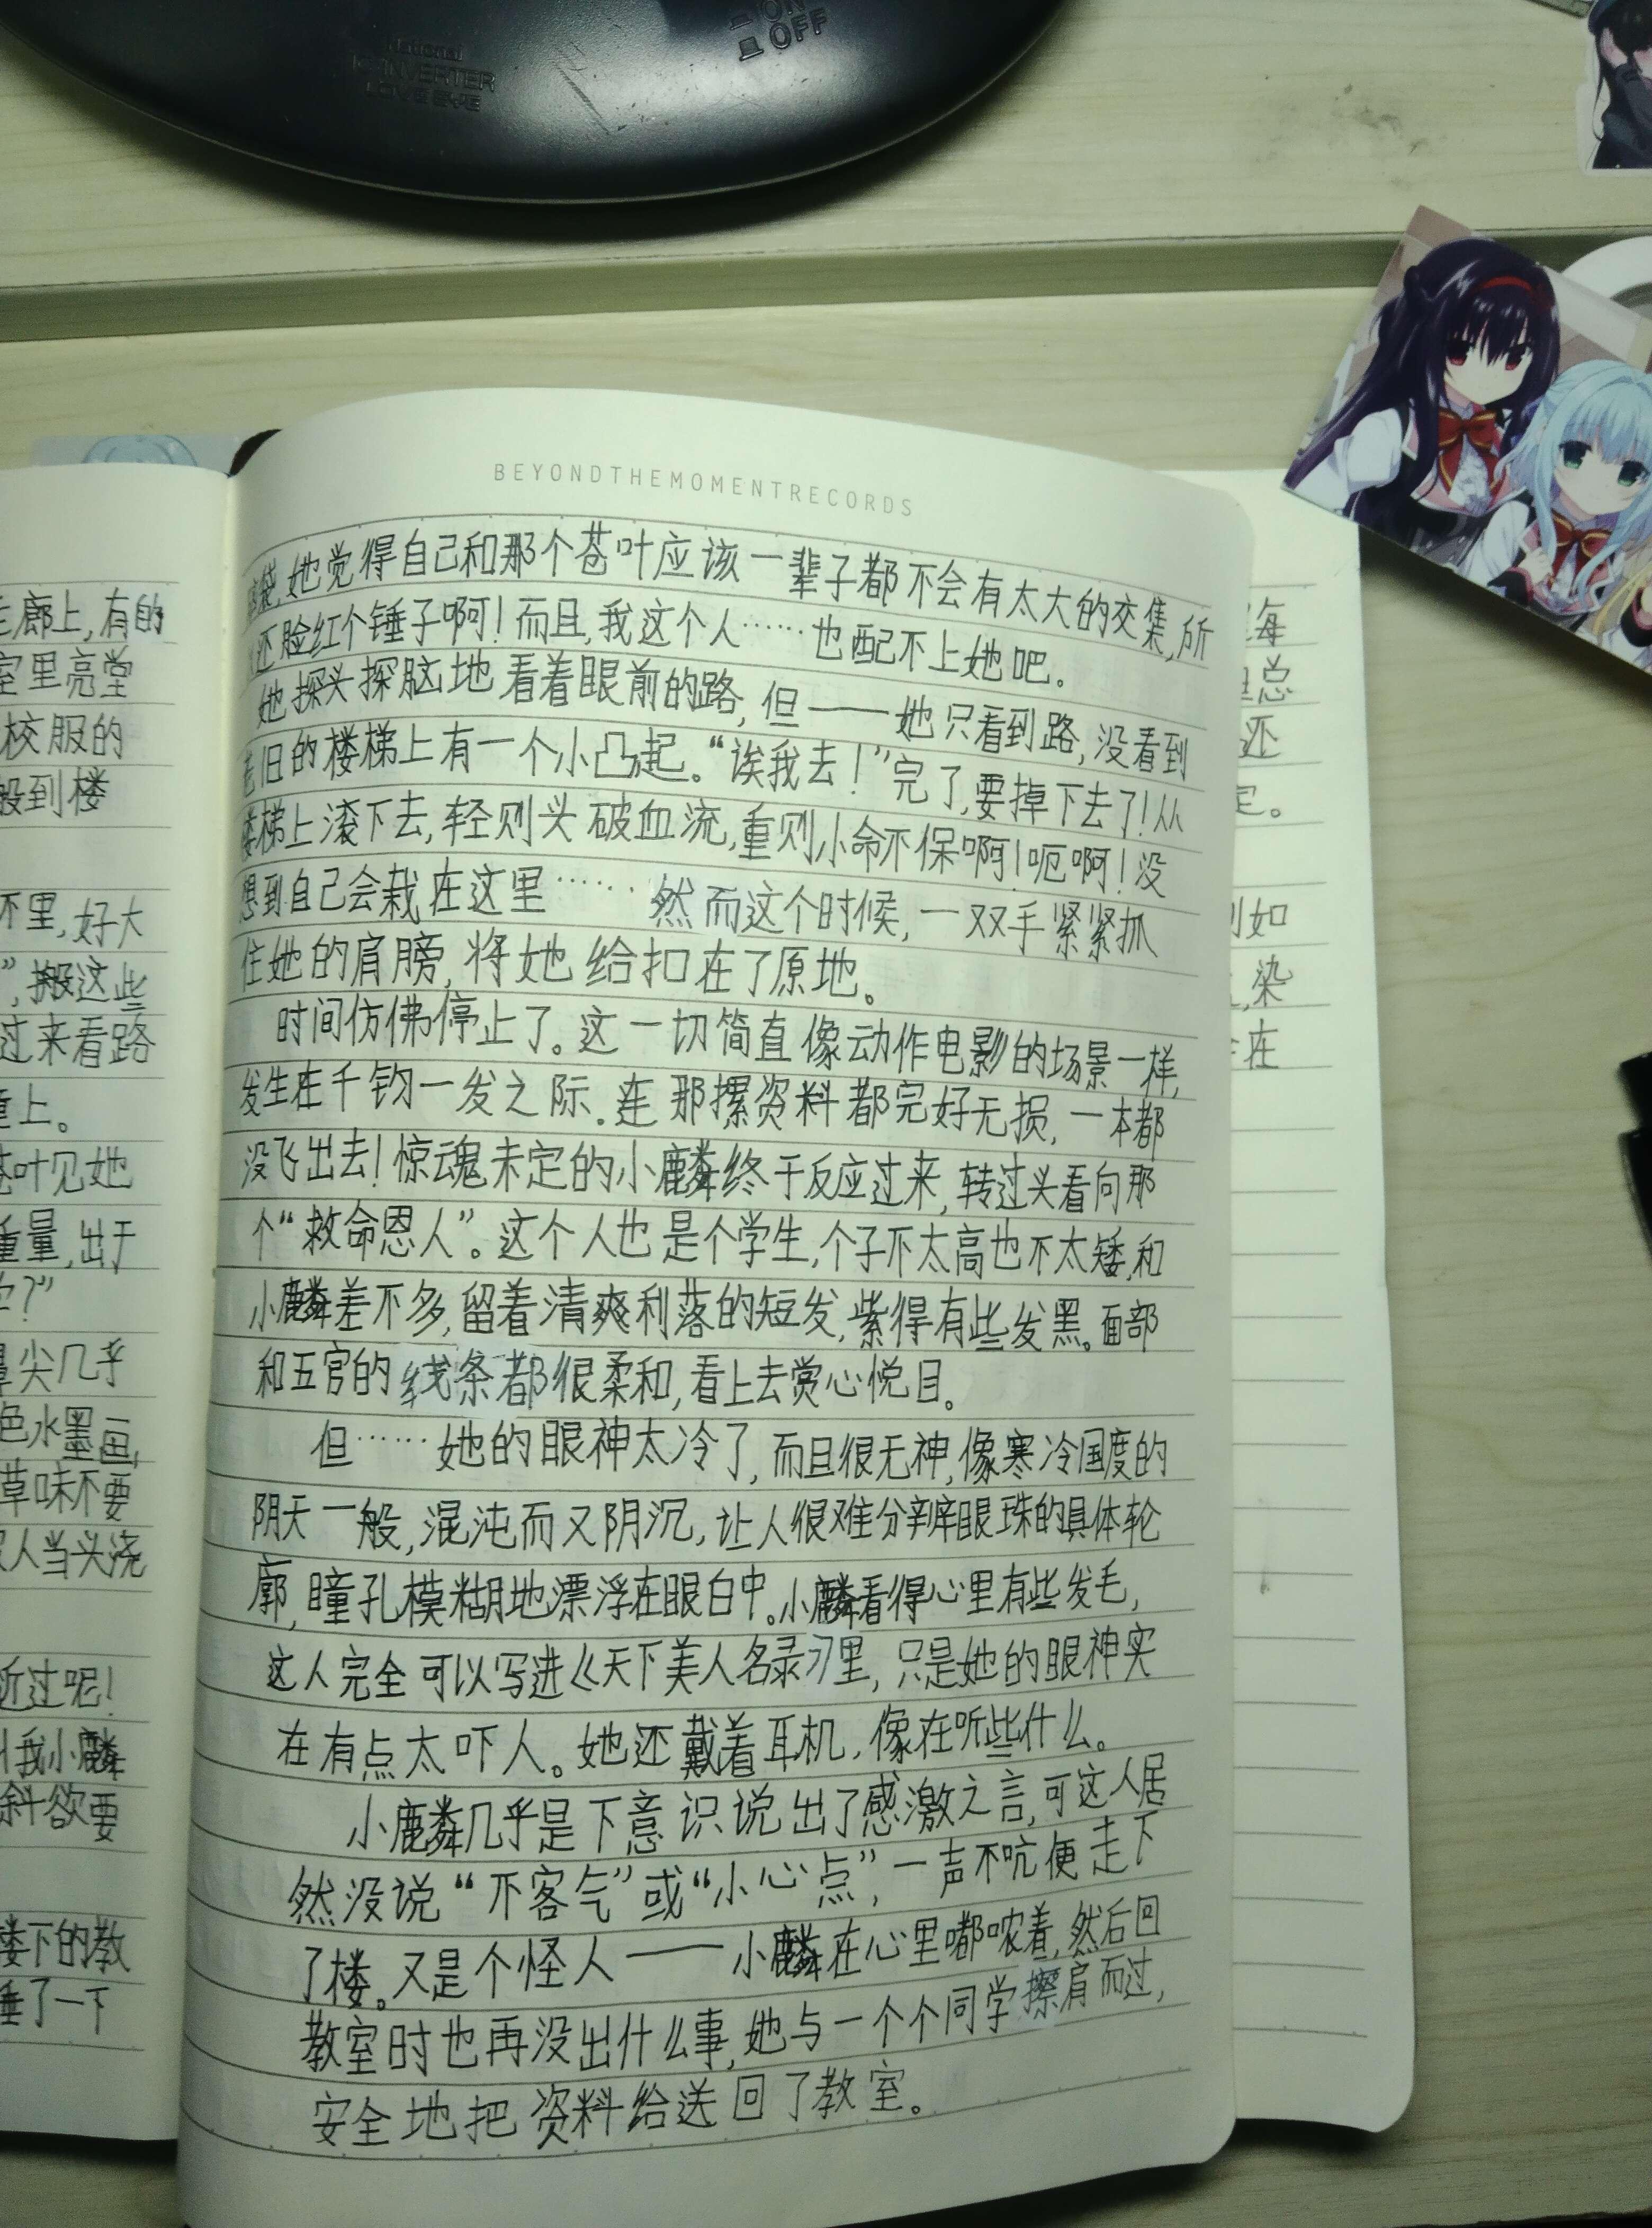 National
CONVERTER
LOVE EYE
ON
OFF
BEYONDTHEMOMENTRECORDS
袋,她觉得自己和那个苍叶应该一辈子都不会有太大的交集,所
还脸红个锤子啊!而且,我这个人……也配不上她吧。
她探头探脑地看着眼前的路,但——她只看到路,没看到
老旧的楼梯上有一个小凸起。“诶我去!”完了,要掉下去了!从
楼梯上滚下去,轻则头破血流,重则小命不保啊!呃啊!没
想到自己会栽在这里……然而这个时候,一双手紧紧抓
住她的肩膀,将她给扣在了原地。
时间仿佛停止了。这一切简直像动作电影的场景一样,
发生在千钧一发之际.连那摞资料都完好无损,一本都
没飞出去!惊魂未定的小麟终于反应过来,转过头看向那
个“救命恩人”。这个人也是个学生,个子不太高也不太矮,和
小麟差不多,留着清爽利落的短发,紫得有些发黑。面部
和五官的线条都很柔和,看上去赏心悦目。
但……她的眼神太冷了,而且很无神,像寒冷国度的
阴天一般,混沌而又阴沉,让人很难分辨眼珠的具体轮
廓,瞳孔模糊地漂浮在眼白中。小麟看得心里有些发毛,
这人完全可以写进《天下美人名录》里,只是她的眼神实
在有点太吓人。她还戴着耳机,像在听些什么。
小麟几乎是下意识说出了感激之言,可这人居
然没说“不客气”或“小心点”,一声不吭便走下
了楼。又是个怪人——小麟在心里嘟哝着,然后回
教室时也再没出什么事,她与一个个同学擦肩而过,
安全地把资料给送回了教室。
走廊上,有的
室里亮堂
校服的
般到楼
怀里,好大
”,搬这些
过来看路
重上。
苍叶见她
重量,出于
?”
鼻尖几乎
色水墨画,
草味不要
人当头浇
近过呢!
我小麟
斜欲要
楼下的教
垂了一下
每
总
还
定。
别如
,染
在